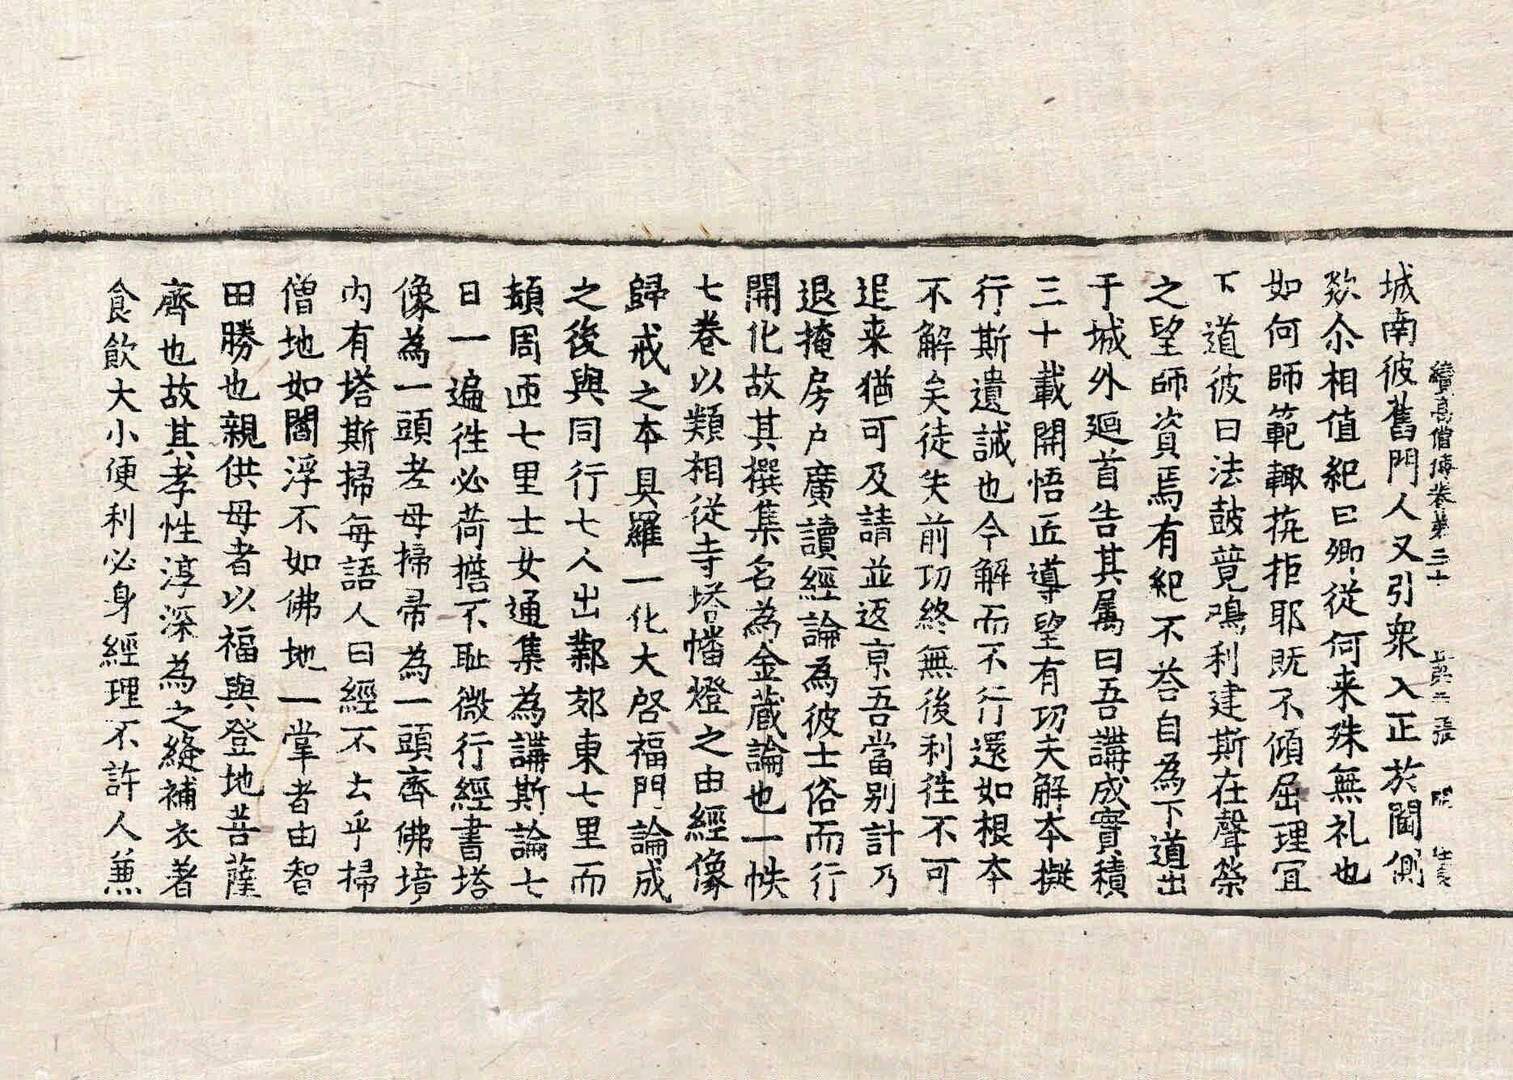 續高僧傳卷第三十 第二張 㒰
城南彼舊門人又引衆入正扵閫側
欻尒相值紀曰卿從何来殊無礼也
如何師範輙抗拒耶既不傾屈理冝
下道彼曰法鼓競鳴利建斯在聲榮
之望師資焉有紀不荅自為下道出
于城外廻首告其属曰吾講成實積
三十載開悟匠導望有㓛夫解本擬
行斯遺誡也今解而不行還如根本
不解矣徒失前㓛終無後利徃不可
追来猶可及請並返京吾當別計乃
退掩房户廣讀經論為彼士俗而行
開化故其撰集名為金蔵論也一帙
七卷以類相從寺塔幡燈之由經像
歸戒之本具羅一化大啓福門論成
之後與同行七人出鄴郊東七里而
頓周迊七里士女通集為講斯論七
日一遍徃必荷擔不耻微行經書塔
像為一頭老母掃帚為一頭齊佛境
内有塔斯掃每語人曰經不云乎掃
僧地如閻浮不如佛地一掌者由智
田勝也親供母者以福與登地菩薩
齊也故其孝性淳深為之縫補衣著
食飲大小便利必身經理不許人兼